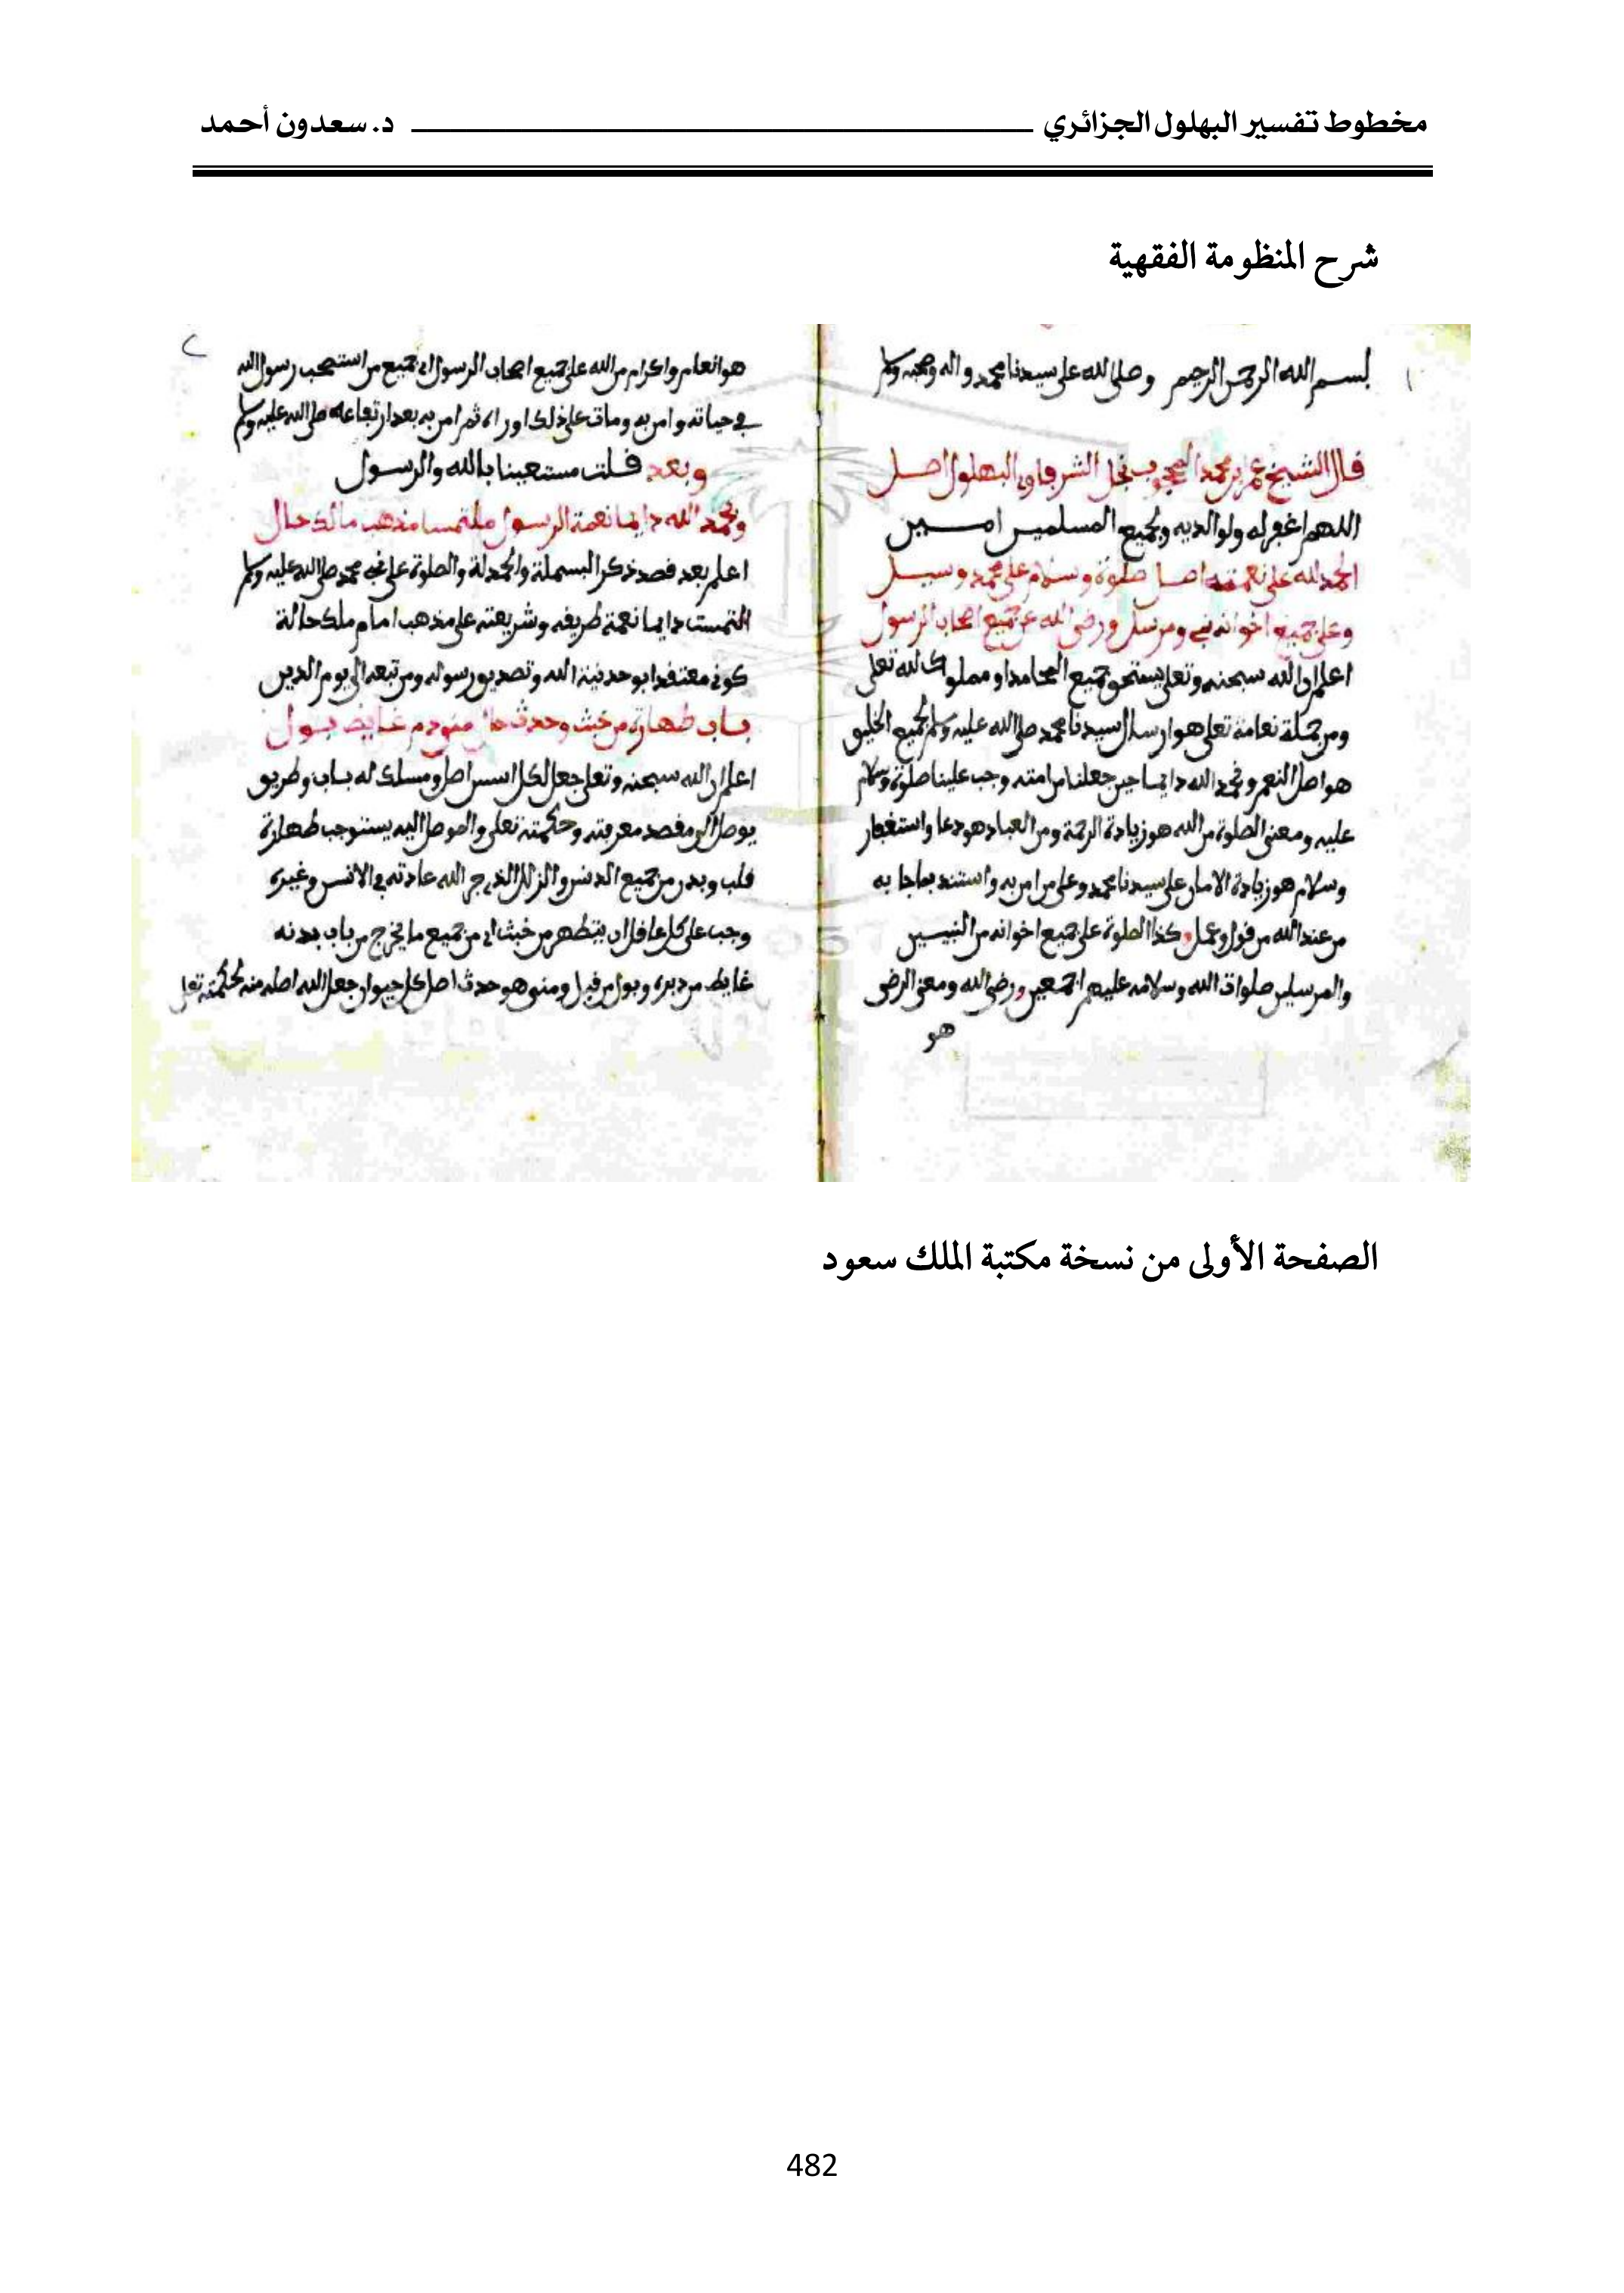 مخطوط تفسير البهلول الجزائري د. سعدون أحمد
شرح المنظومة الفقهية
١
بسم الله الرحمن الرحيم وصلى الله على سيدنا محمد واله وصحبه وسلم
قال الشيخ عمر بن محمد المحجوب نجل الشرفاوي البهلول اصل
اللهم اغفر له ولوالديه ولجميع المسلمين امين
الحمد لله على نعمته اصل صلوة وسلام على محمد وسيل
وعلى جميع اخوانه نبي ومرسل ورضى الله عن جميع اصحاب الرسول
اعلم ان الله سبحنه وتعلى يستحق جميع المحامد او مملوك لله تعلى
ومن جملة نعامة تعلى هو ارسال سيدنا محمد صلى الله عليه وسلم لجميع الخليق
هو اصل النعم ونحمد الله دايما حين جعلنا من امته وجب علينا صلوة وسلام
عليه ومعنى الصلوة من الله هو زيادة الرحمة ومن العباد هو دعا واستغفار
وسلام هو زيادة الامان على سيدنا محمد وعلى من امن به واستند بما جا به
من عند الله من قول وعمل وكذا الصلوة على جميع اخوانه من النبيين
والمرسلين صلوات الله وسلامه عليهم اجمعين ورضى الله ومعنى الرضى
هو
٢
هو انعام واكرام من الله على جميع اصحاب الرسول اي جميع من استصحب رسول الله
في حياته وامن به ومات على ذلك او راه ثم امن به بعد ارتفاعه صلى الله عليه وسلم
وبعد قلت مستعينا بالله والرسول
ونحمد الله دايما نعمة الرسول ملتمسا مذهب مالك حال
اعلم بعد قصد ذكر البسملة والحمدلة والصلوة على نبيه محمد صلى الله عليه وسلم
التمست دايما نعمة طريقه وشريعته على مذهب امام ملك حالة
كوني معتقدا بوحدنية الله وتصديق رسوله ومن تبعه الى يوم الدين
باب طهارة من خبث وحدث منى ودم غايط بول
اعلم ان الله سبحنه وتعلى جعل لكل اسس اصل ومسلك له باب وطريق
يوصل الى مقصد معرفته وحكمته تعلى والموصل اليه يستوجب طهارة
قلب وبدن من جميع الدنس والزلل الذي جر الله عادته في الانس وغيره
وجب على كل عاقل ان يتطهر من خبث اي من جميع ما يخرج من باب بدنه
غايط من دبره وبول من قبل ومنى هو حدث اصل كل حيوان جعل الله اصله منه لحكمته تعلى
الصفحة الأولى من نسخة مكتبة الملك سعود
482